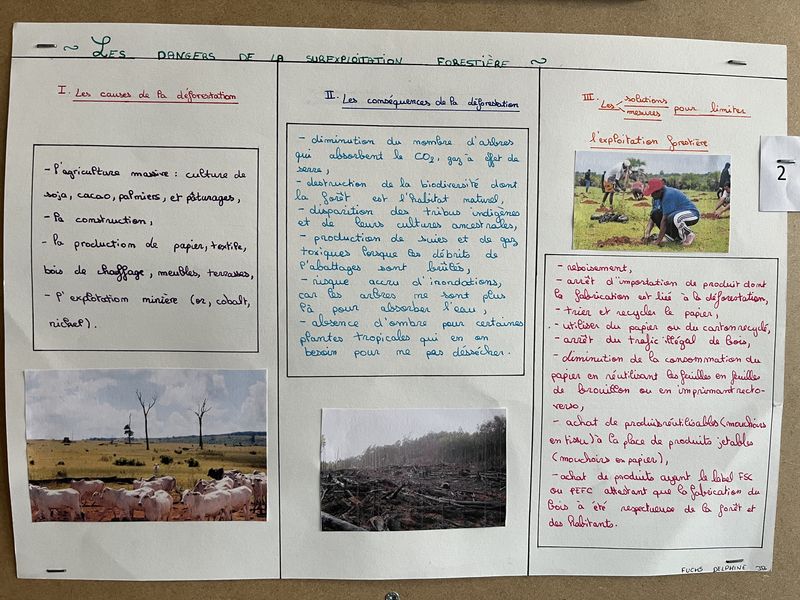 ~ LES DANGERS DE LA SUREXPLOITATION FORESTIÈRE ~
I. Les causes de la déforestation
- l'agriculture massive : culture de
soja, cacao, palmiers, et pâturages,
- la construction,
- la production de papier, textile,
bois de chauffage, meubles, terrasses,
- l'exploitation minière (or, cobalt,
nickel).
II. Les conséquences de la déforestation
- diminution du nombre d'arbres
qui absorbent le CO2, gaz à effet de
serre,
- destruction de la biodiversité dont
la forêt est l'habitat naturel,
- disparition des tribus indigènes
et de leurs cultures ancestrales,
- production de suies et de gaz
toxiques lorsque les débrits de
l'abattages sont brûlés,
- risque accru d'inondations,
car les arbres ne sont plus
là pour absorber l'eau,
- absence d'ombre pour certaines
plantes tropicales qui en on
besoin pour ne pas déssécher.
III. Les solutions mesures pour limiter
l'exploitation forestière
- reboisement,
- arrêt d'importation de produit dont
la fabrication est liée à la déforestation,
- trier et recycler le papier,
- utiliser du papier ou du carton recyclé,
- arrêt du trafic illégal de bois,
- diminution de la consommation du
papier en réutilisant les feuilles en feuilles
de brouillon ou en imprimant recto-
verso,
- achat de produis réutilisables (mouchoirs
en tissu) à la place de produits jetables
(mouchoirs en papier),
- achat de produits ayant le label FSC
ou PEFC attestant que la fabrication du
bois a été respectueuse de la forêt et
des habitants.
2
FUCHS DELPHINE